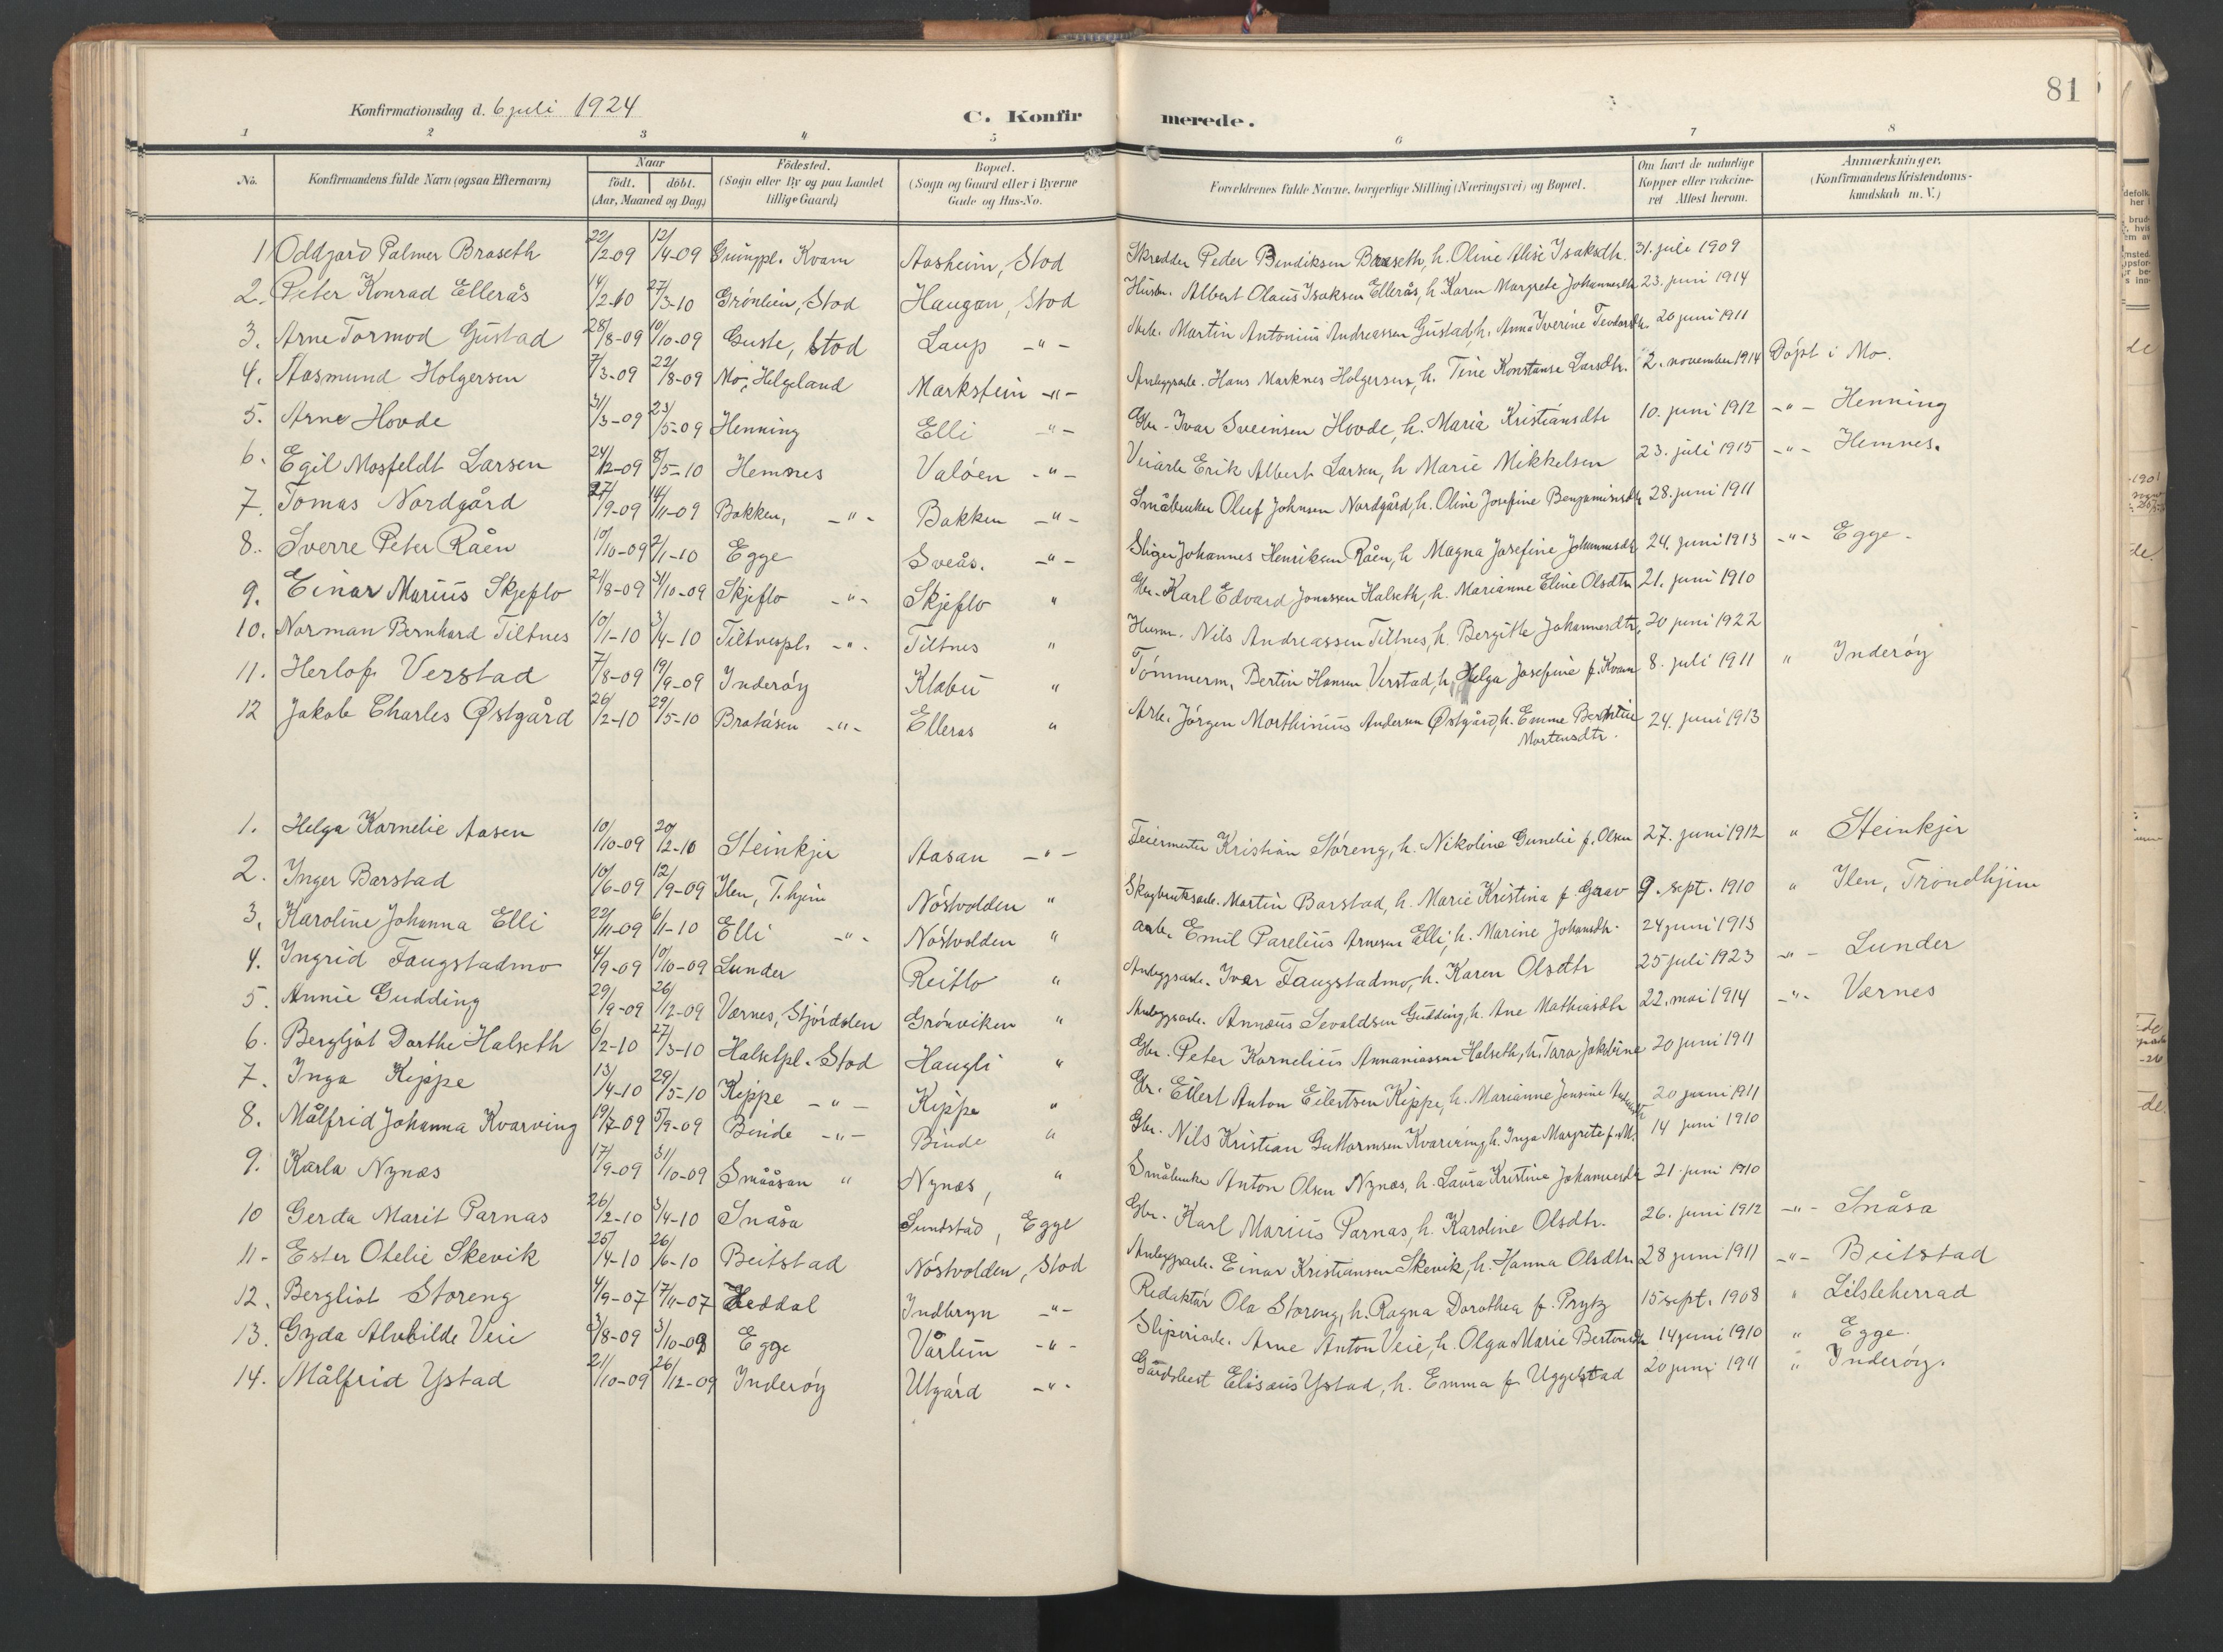 81
Konfirmationsdag d. 6 juli 1924
C. Konfirmerede.
1 2 3 4 5 6 7 8
No.
Konfirmandens fulde Navn (ogsaa Efternavn)
Naar
födt. döbt.
(Aar, Maaned og Dag)
Födested.
(Sogn eller By og paa Landet
tillige Gaard)
Bopæl.
(Sogn og Gaard eller i Byerne
Gade og Hus-No.
Forældrenes fulde Navne, borgerlige Stilling (Næringsvei) og Bopæl.
Om havt de naturlige
Kopper eller vakcine-
ret Attest herom.
Anmærkninger.
(Konfirmandens Kristendoms-
kundskab m. V.)
1 Oddgard Palmer Braseth 22/2-09 12/4-09 Guingpl. Kvam Aasheim, Stod Skredder Peder Bendiksen Braseth, h. Oline Alise Isaksdtr. 31. juli 1909
2. Peter Konrad Ellerås 14/2-10 27/3-10 Grönlien, Stod Haugan, Stod Husbr. Albert Olaus Isaksen Ellerås, h. Karen Margrete Johannesdtr 23. juni 1914
3. Arne Tormod Gustad 28/8-09 10/10-09 Guste, Stod Laup -"- Arb. Martin Antonius Andreassen Gustad, h. Anna Iverine Teodorsdtr. 20 juni 1911
4. Aasmund Holgersen 7/3-09 22/8-09 Mo, Helgeland Markstein -"- Anleggsarb. Hans Marknes Holgersen, h. Tine Konstanse Larsdtr. 2. november 1914 Döpt i Mo.
5. Arne Hovde 31/3-09 23/5-09 Henning Elli -"- Gbr. Ivar Sveinsen Hovde, h. Maria Kristiansdtr 10. juni 1912 -"- Henning
6. Egil Mosfeldt Larsen 24/12-09 8/5-10 Hemnes Valöen -"- Veiarb Erik Albert Larsen, h Marie Mikkelsen 23. juli 1915 -"- Hemnes.
7. Tomas Nordgård 27/9-09 14/11-09 Bakken, -"- Bakken -"- Småbruker Oluf Johnsen Nordgård, h. Oline Josefine Benjaminsdtr 28. juni 1911
8. Sverre Peter Råen 10/10-09 2/1-10 Egge Sveås. -"- Sliper Johannes Henriksen Råen, h Magna Josefine Johannesdtr 24. juni 1913 -"- Egge.
9. Einar Marius Skjeflo 21/8-09 31/10-09 Skjeflo -"- Skjeflo " Gbr. Karl Edvard Jonassen Halseth, h. Marianne Eline Olsdtr 21. juni 1910
10. Norman Bernhard Tiltnes 10/1-10 3/4-10 Tiltnespl. -"- Tiltnes " Husm. Nils Andreassen Tiltnes, h. Bergitte Johannesdtr, 20 juni 1922
11. Herlof Verstad 7/8-09 19/9-09 Inderöy Klabu " Tömmerm. Bertin Hansen Verstad, h. Helga Josefine f. Kvam 8. juli 1911 " Inderöy
12 Jakob Charles Østgård 26/2-10 29/5-10 Bratåsen -"- Elleras " Arb. Jörgen Morthinius Andersen Østgård, h. Emme Berntine 24. juni 1913
Mortensdtr.
1. Helga Kornelie Aasen 10/10-09 20/2-10 Steinkjer Aasan -"- Feiermester Kristian Störeng, h. Nikoline Gunelie f. Olsen 27. juni 1912 " Steinkjer
2. Inger Barstad 10/6-09 12/9-09 Ilen, T.hjem Nöstvolden " Skogbruksarb. Martin Barstad, h. Marie Kristina f Grav 9. sept. 1910 " Ilen, Trondhjem
3. Karoline Johanna Elli 22/11-09 6/1-10 Elli -"- Nöstvolden " arb. Emil Parelius Arnesen Elli, h. Marine Johansdtr. 24 juni 1913
4. Ingrid Faugstadmo 4/9-09 10/10-09 Lunder Reitlo " Anleggsarb. Ivar Faugstadmo, h. Karen Olsdtr 25 juli 1923 -"- Lunder
5. Annie Gudding 29/9-09 26/12-09 Værnes, Stjördalen Grönviken " Anleggsarb. Annæus Sevaldsen Gudding, h. Ane Mathiasdtr 22. mai 1914 -"- Værnes
6. Bergljot Dorthe Halseth 6/2-10 27/3-10 Halsetpl. Stod Haugli " Gbr. Peter Kornelius Annaniassen Halseth, h. Tara Jakobine 20 juni 1911
7. Inga Kippe 13/4-10 29/5-10 Kippe -"- Kippe " Gbr. Eilert Anton Eilertsen Kippe, h. Marianne Jensine 20 juni 1911
8. Målfrid Johanna Kvarving 19/7-09 5/9-09 Binde -"- Binde " Gbr. Nils Kristian Guttormsen Kvarving, h. Inga Margrete f. M. 14 juni 1910
9. Karla Nynæs 17/9-09 31/10-09 Smååsan " Nynæs, " Småbruker Anton Olsen Nynæs, h. Laura Kristine Johannesdtr 21. juni 1910
10 Gerda Marit Parnas 26/2-10 3/4-10 Snåsa Sundstad, Egge Gbr. Karl Marius Parnas, h. Karoline Olsdtr. 26. juni 1912 -"- Snåsa
11- Ester Otelie Skevik 25/4-10 26/6-10 Beitstad Nöstvolden, Stod Anleggsarb. Einar Kristiansen Skevik, h. Hanna Olsdtr. 28 juni 1911 -"- Beitstad
12. Bergliot Storeng 4/9-07 17/11-07 Heddal Indbryn -"- Redaktör Ola Storeng, h. Ragna Dorothea f. Prytz 15 sept. 1908 " Lilleherrad
13. Gyda Alvhilde Veie 3/8-09 3/10-09 Egge Vårlim -"- Sliperiarb. Arne Anton Veie, h. Olga Marie Bertinsdtr 14 juni 1910 " Egge.
14. Målfrid Ystad 21/10-09 26/12-09 Inderöy Utgård -"- Gårdsbest Elisæus Ystad, h. Emma f. Uggelstad 20 juni 1911 " Inderöy.